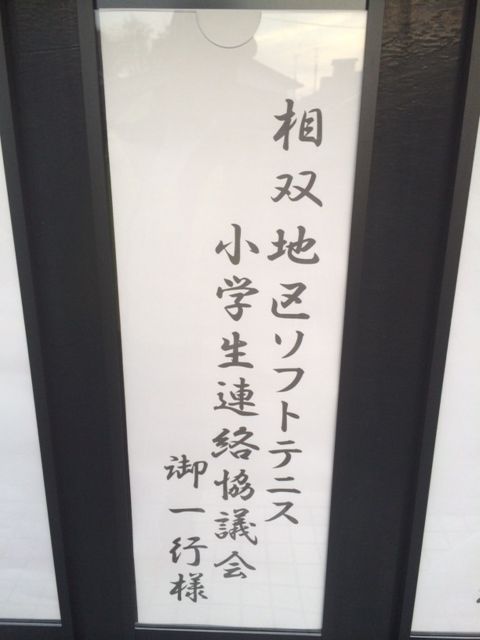 相双地区ソフトテニス
小学生連絡協議会
御一行様